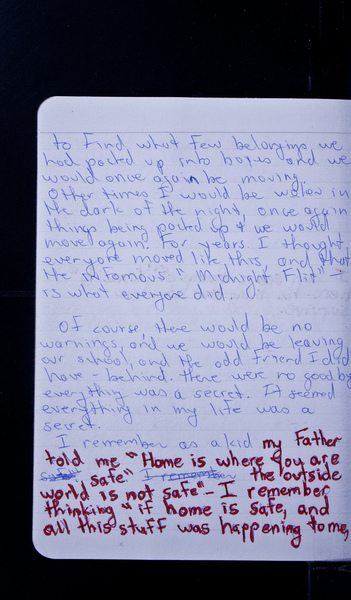 to find, what few belongings, we
had packed up into boxes and we
would once again be moving.
Other times I would be woken in
the dark of the night, once again
things being packed up & we would
move again. For years I thought,
everyone moved like this, and that
the infamous "Midnight Flit" -
is what everyone did.
Of course, there would be no
warnings, and we would be leaving
our school, and the odd friend I did
have - behind. There were no good by
everything was a secret. It seemed
everything in my life was a
secret.
I remember as a kid my Father
told me "Home is where you are
safe" I remember the outside
world is not safe" - I remember
thinking "if home is safe, and
all this stuff was happening to me,